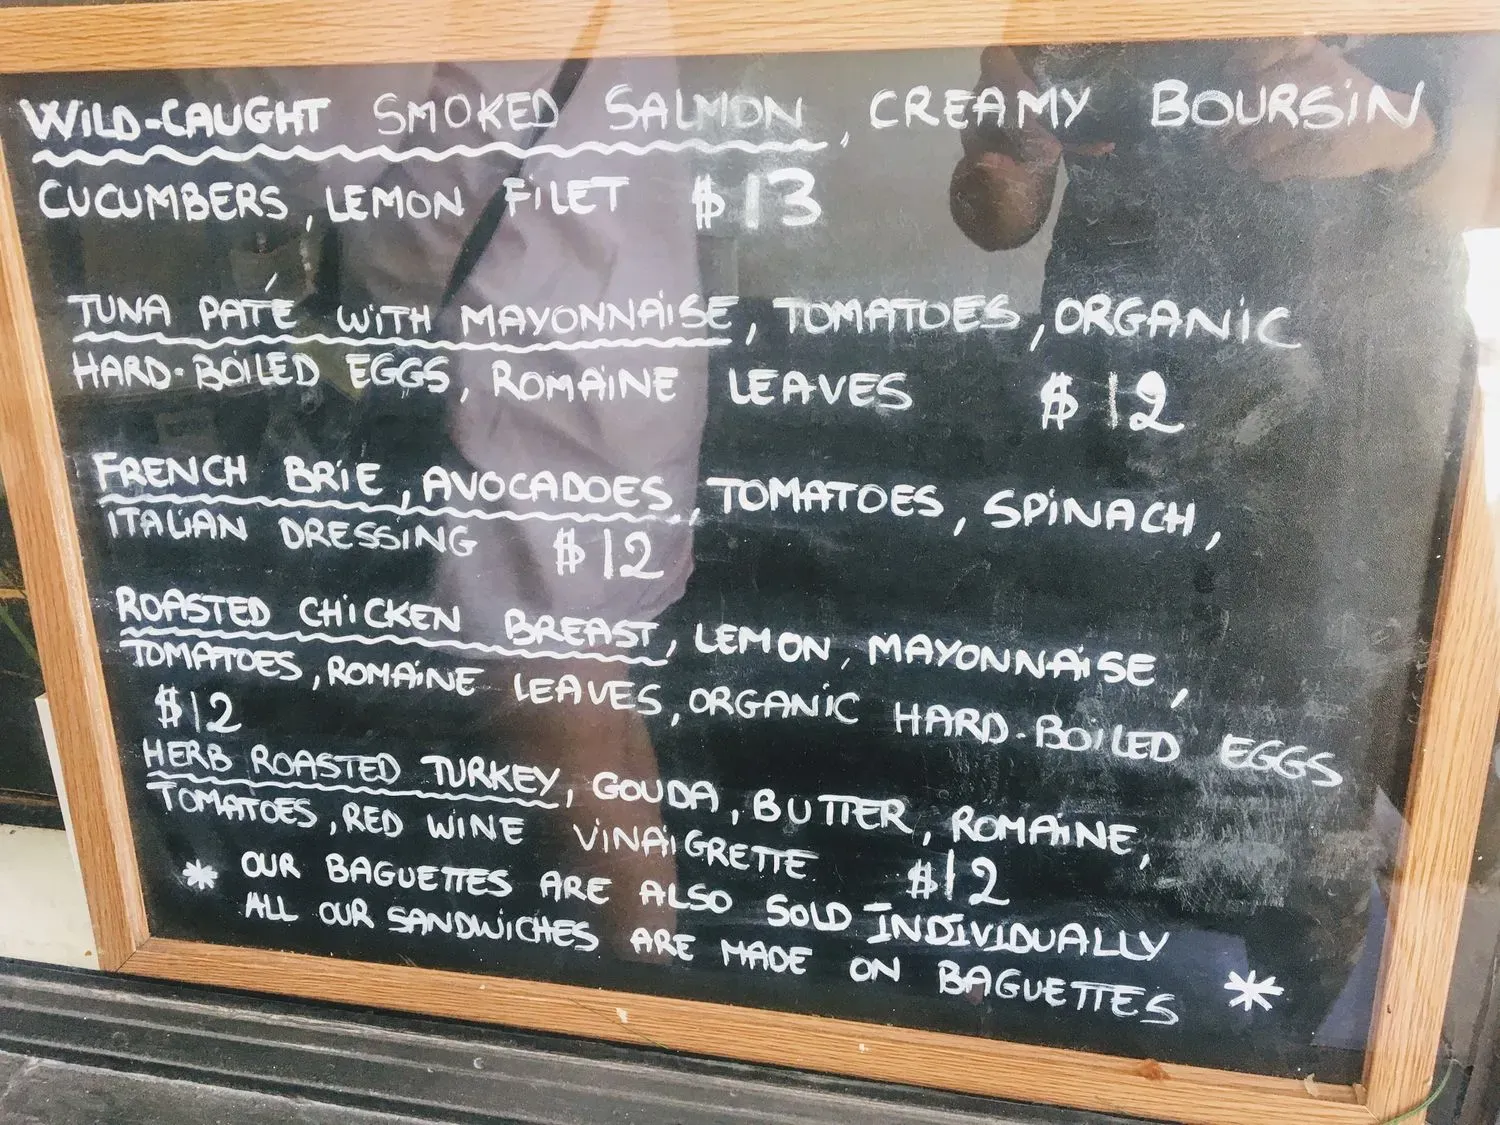 WiLD-CAUGHT SMOKED SALMON, CREAMY BOURSiN
CUCUMBERS, LEMON FiLET $13
TUNA PATÉ WiTH MAYONNAiSE, TOMATOES, ORGANiC
HARD-BOiLED EGGS, ROMAiNE LEAVES $12
FRENCH BRiE, AVOCADOES, TOMATOES, SPiNACH,
iTALiAN DRESSING $12
ROASTED CHiCKEN BREAST, LEMON, MAYONNAiSE,
TOMATOES, ROMAiNE LEAVES, ORGANiC HARD-BOiLED EGGS
$12
HERB ROASTED TURKEY, GOUDA, BUTTER, ROMAiNE,
TOMATOES, RED WINE ViNAiGRETTE $12
* OUR BAGUETTES ARE ALSO SOLD INDIVIDUALLY
ALL OUR SANDWiCHES ARE MADE ON BAGUETTES *